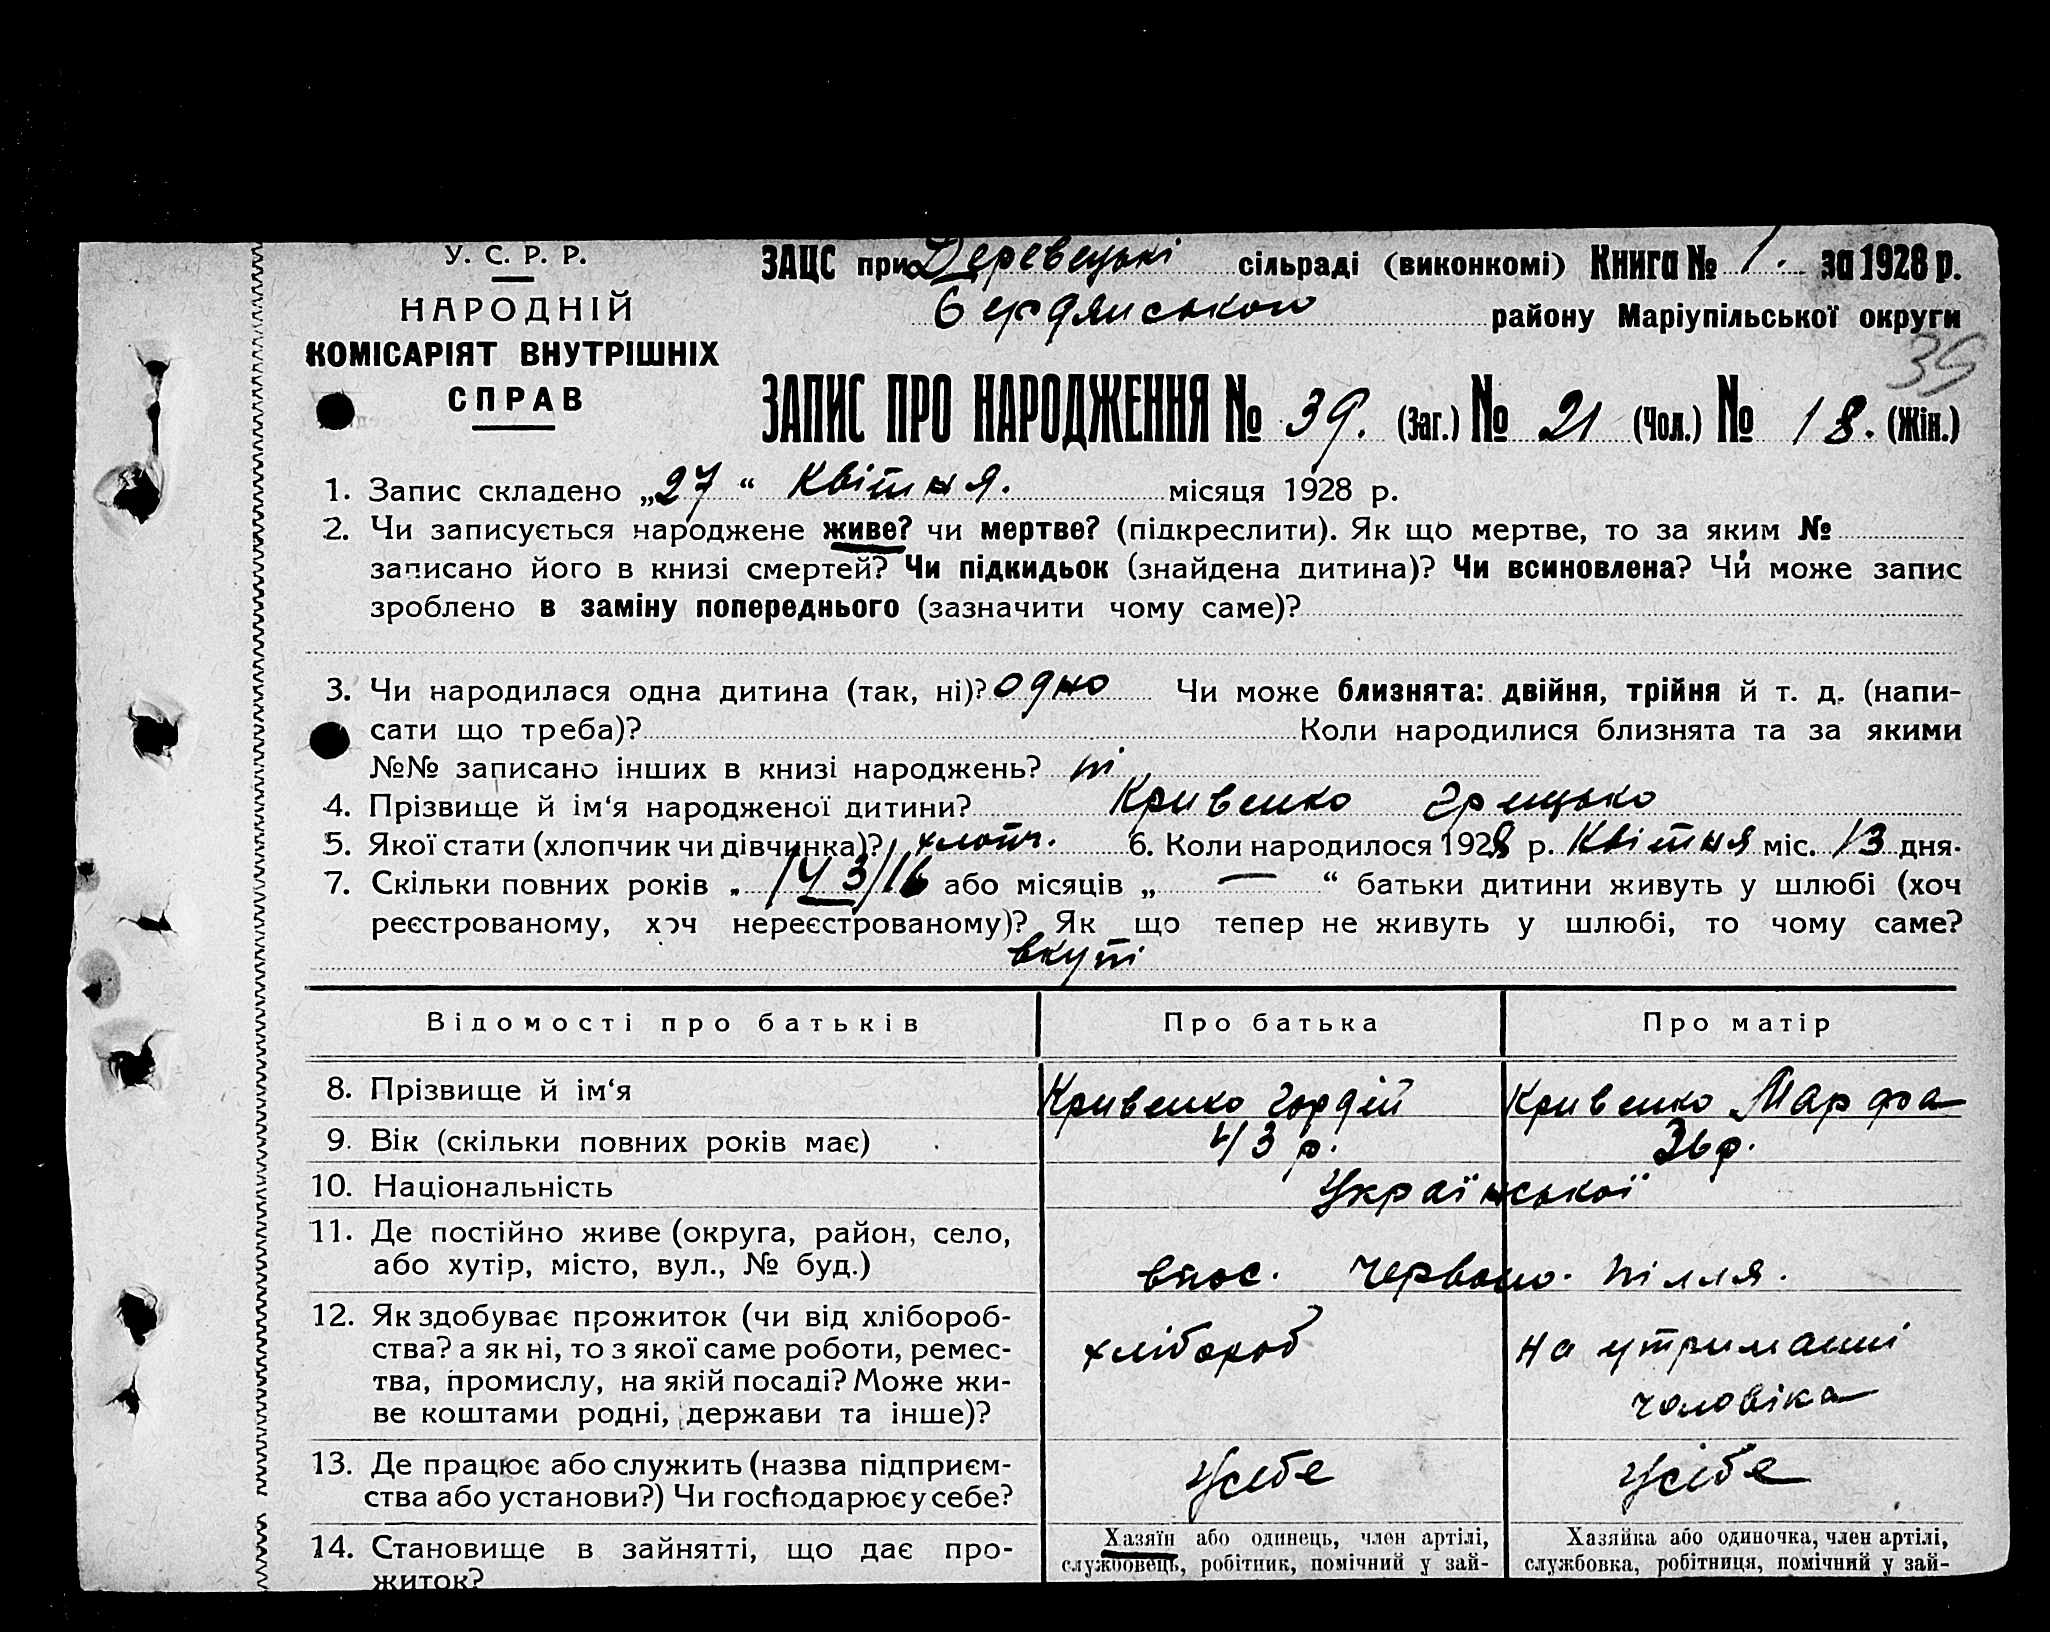 У. С. Р. Р.
НАРОДНІЙ
КОМІСАРІЯТ ВНУТРІШНІХ
СПРАВ
ЗАЦС при Деревецькі сільраді (виконкомі) Книга № 1. за 1928 р.
Бердянського району Маріупільської округи
39
ЗАПИС ПРО НАРОДЖЕННЯ № 39. (Заг.) № 21 (Чол.) № 18. (Жін.)
1. Запис складено „27“ Квітня. місяця 1928 р.
2. Чи записується народжене живе? чи мертве? (підкреслити). Як що мертве, то за яким №
записано його в книзі смертей? Чи підкидьок (знайдена дитина)? Чи всиновлена? Чи може запис
зроблено в заміну попереднього (зазначити чому саме)?
3. Чи народилася одна дитина (так, ні)? одно Чи може близнята: двійня, трійня й т. д. (напи-
сати що треба)? Коли народилися близнята та за якими
№№ записано інших в книзі народжень? ні
4. Прізвище й ім‘я народженої дитини? Кривенко Грицько
5. Якої стати (хлопчик чи дівчинка)? хлопч. 6. Коли народилося 1928 р. Квітня міс. 13 дня.
7. Скільки повних років „ або місяців „ — “ батьки дитини живуть у шлюбі (хоч
реєстрованому, хоч нереєстрованому)? Як що тепер не живуть у шлюбі, то чому саме?
вкупі
Відомості про батьків Про батька Про матір
8. Прізвище й ім‘я Кривенко Гордій Кривенко Марфа
9. Вік (скільки повних років має) 43 р. 36 р.
10. Національність Української
11. Де постійно живе (округа, район, село,
або хутір, місто, вул., № буд.) впос. Червоно. Пілля.
12. Як здобуває прожиток (чи від хлібороб-
ства? а як ні, то з якої саме роботи, ремес- хлібороб на утриманні
тва, промислу, на якій посаді? Може жи-
ве коштами родні, держави та інше)? чоловіка
13. Де працює або служить (назва підприєм- Усебе Усебе
ства або установи?) Чи господарює у себе?
14. Становище в зайнятті, що дає про- Хазяїн або одинець, член артілі, Хазяйка або одиночка, член артілі,
житок? службовець, робітник, помічний у зай- службовка, робітниця, помічний у зай-